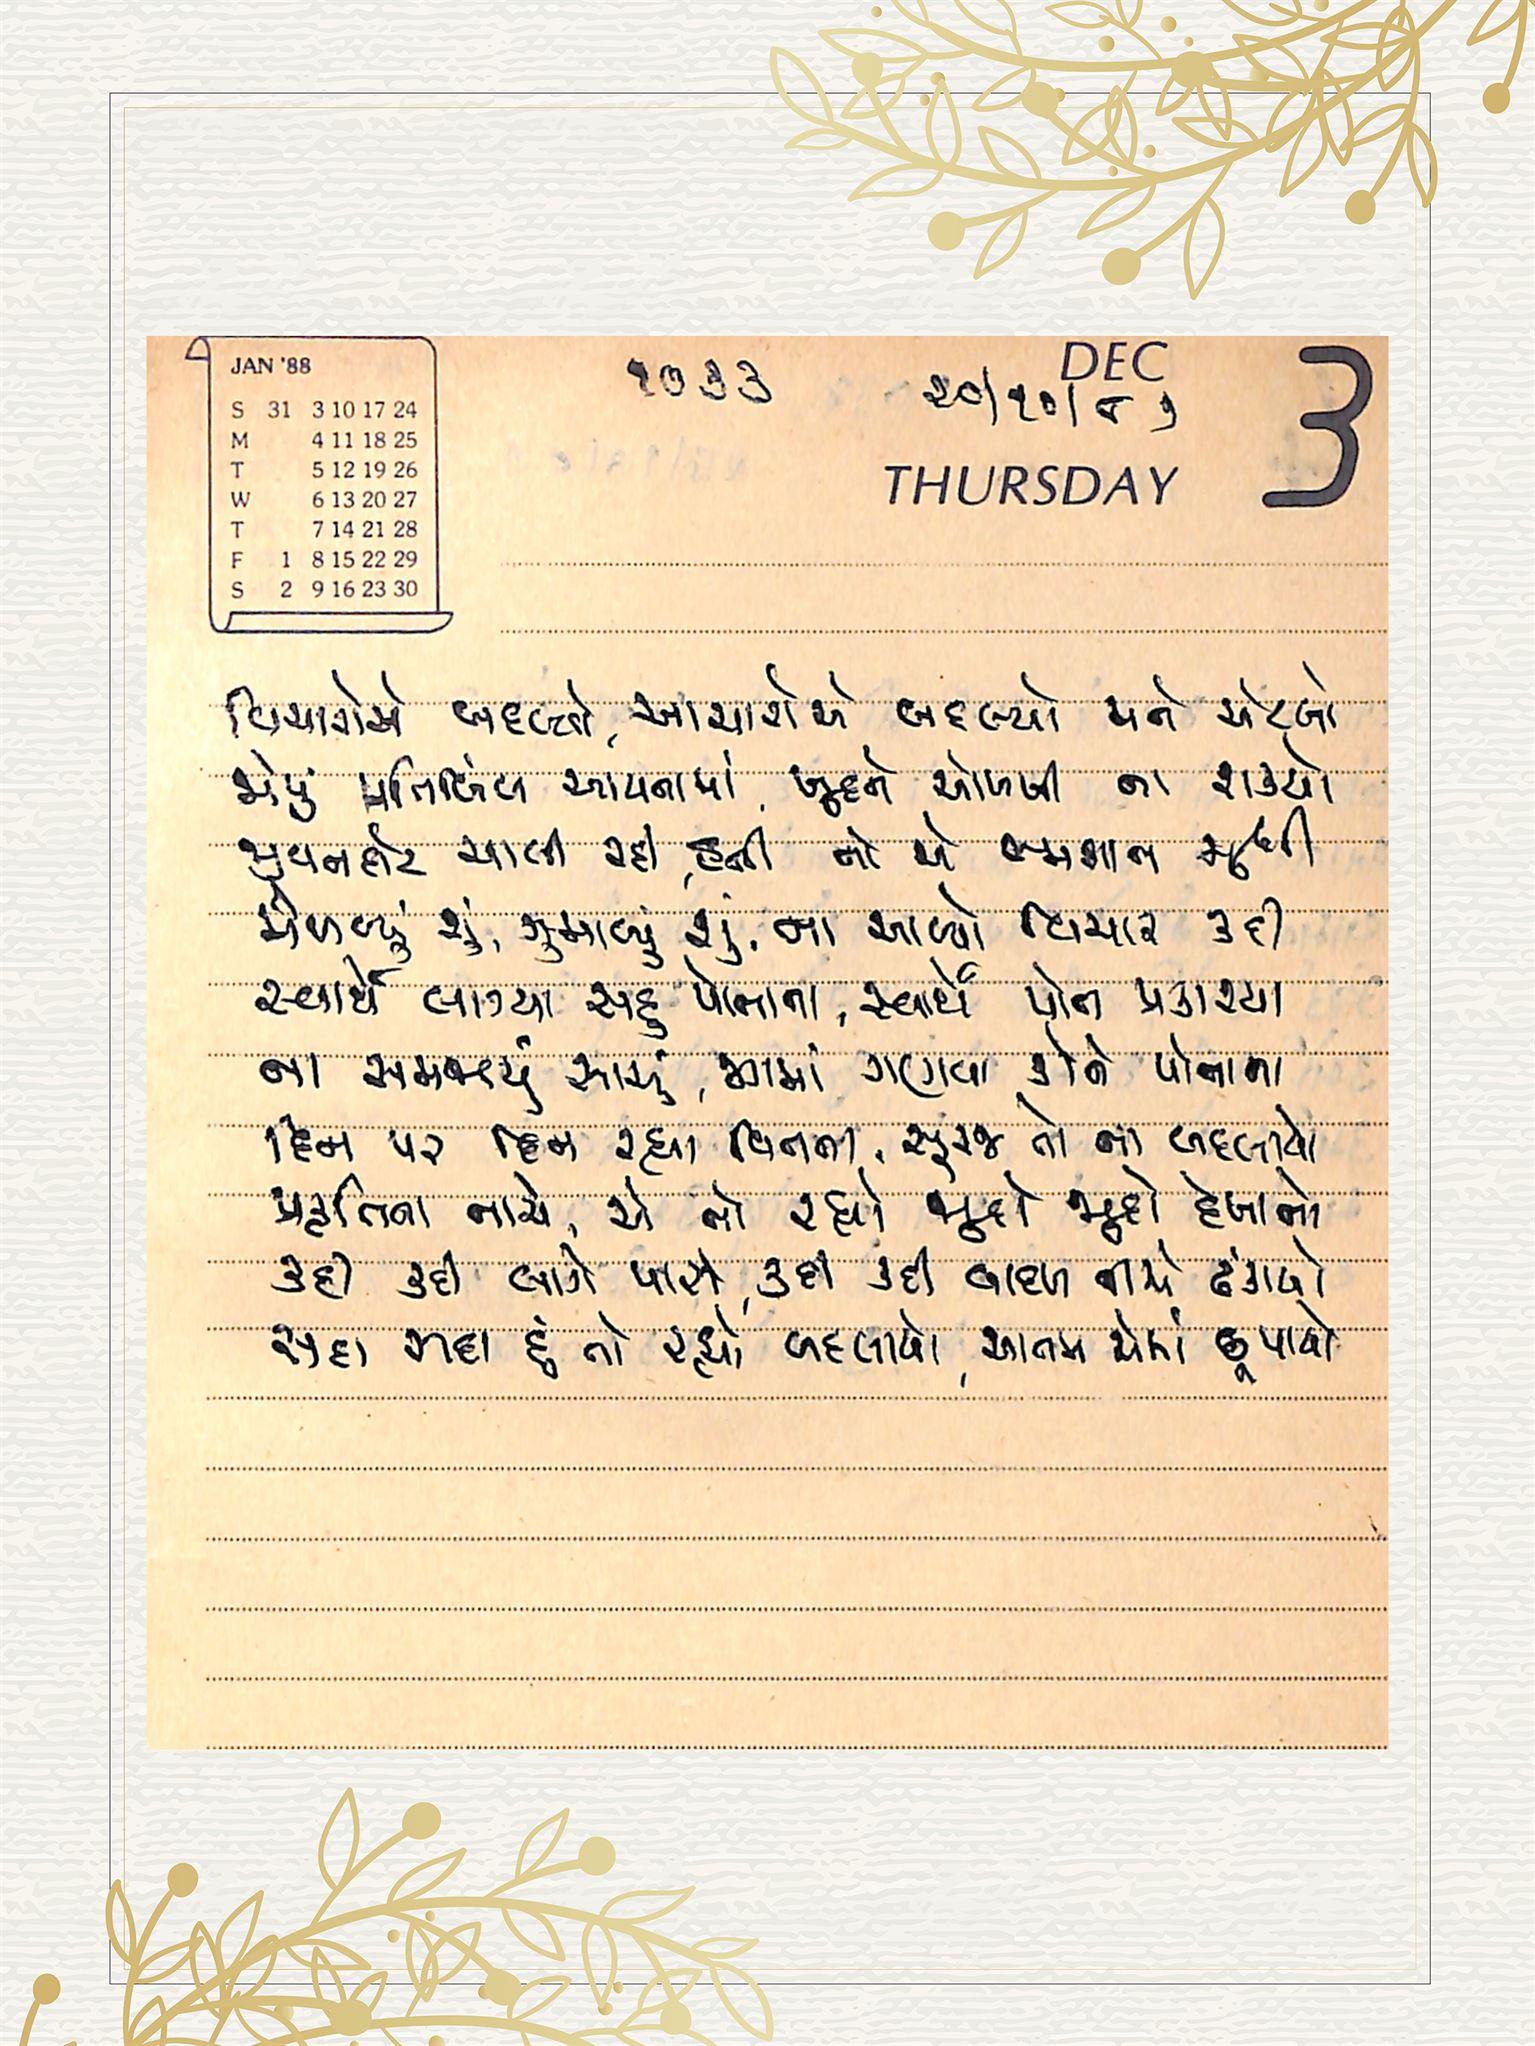 JAN '88
S 31 3 10 17 24
M 4 11 18 25
T 5 12 19 26
W 6 13 20 27
T 7 14 21 28
F 1 8 15 22 29
S 2 9 16 23 30
૧૦૩૩
DEC
૨૦/૧૦/૮૭
THURSDAY
3
વિચારોએ બદલ્યો, આચારોએ બદલ્યો મને એટલો
જોયું પ્રતિબિંબ આયનામાં, ખુદને ઓળખી ના શક્યો
જીવનભેટ ચાલી રહી હતી તો એ સ્મશાન સુધી
મેળવ્યું શું, ગુમાવ્યું શું, ના આવ્યો વિચાર કદી
સ્વાર્થે લાગ્યા સહુ પોતાના, સ્વાર્થે પોત પ્રકાશ્યા
ના સમજાયું સાચું, જગમાં ગણવા કોને પોતાના
દિન પર દિન રહ્યા વિતતા, સૂરજ તો ના બદલાયો
પ્રકૃતિના નાચે, એ તો રહ્યો જુદો જુદો દેખાતો
કદી કદી લાગે પાસે, કદી કદી વાદળ નીચે ઢંકાયો
સદા સદા હું તો રહ્યો બદલાયો, આતમ એમાં છૂપાયો